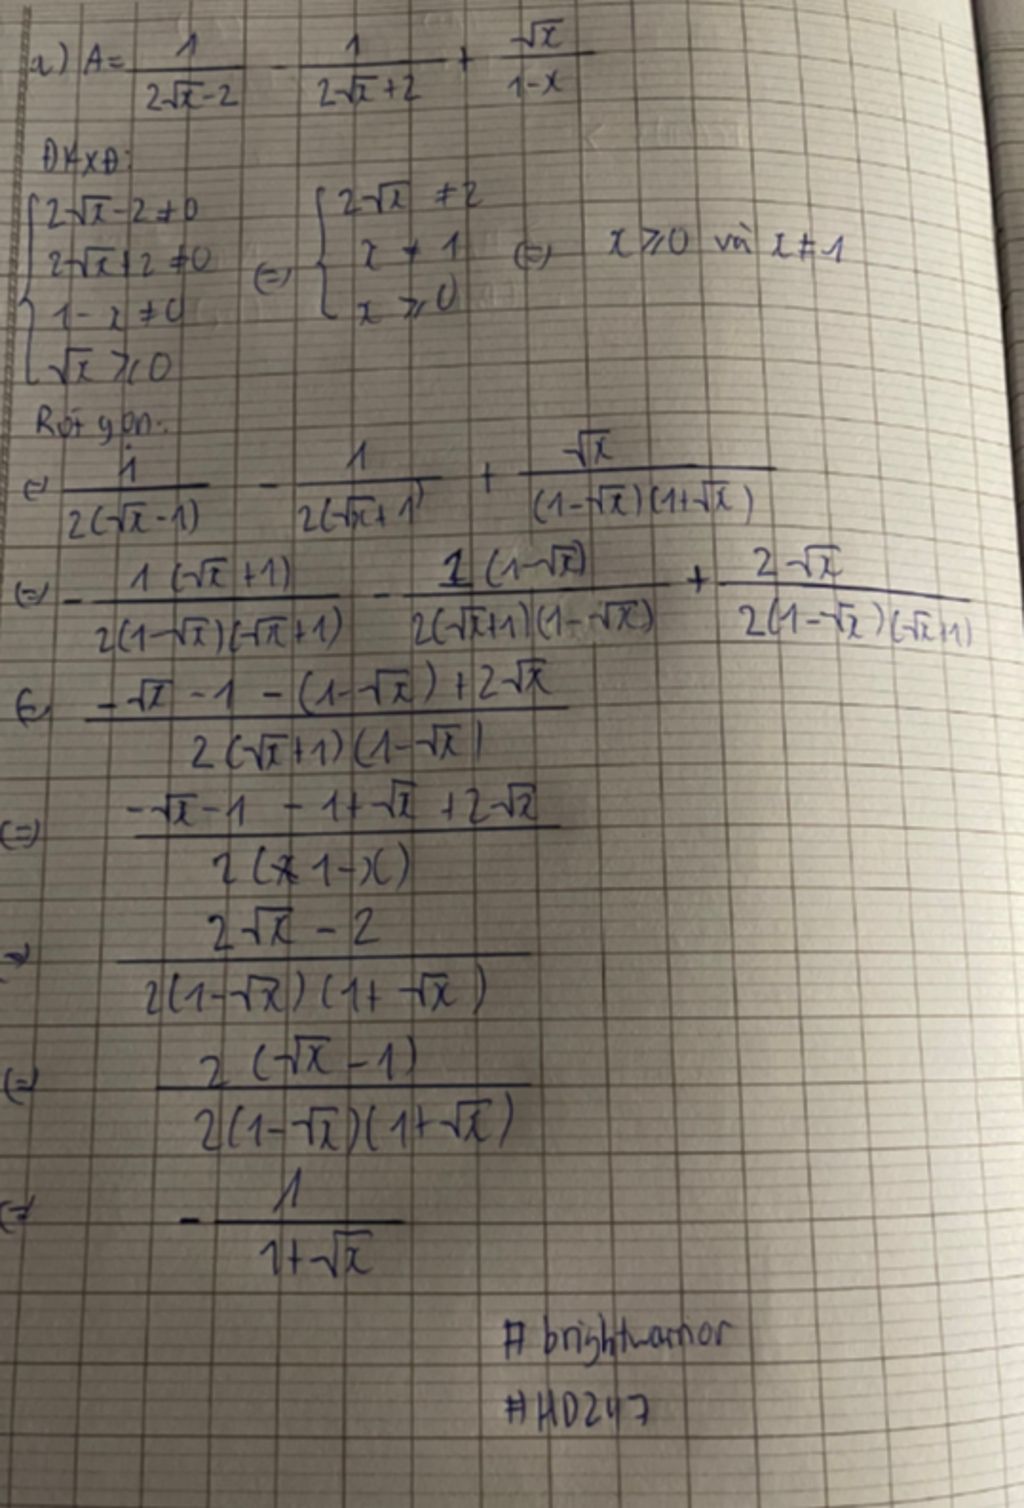 a) A = 1/(2√x-2) - 1/(2√x+2) + √x/(1-x)
ĐKXĐ:
{ 2√x-2≠0 ; 2√x+2≠0 ; 1-x≠0 ; √x≥0 (=) { 2√x ≠2 ; x ≠ 1 ; x ≥0 (=) x≥0 và x≠1
Rút gọn:
(=) 1/(2(√x-1)) - 1/(2(√x+1)) + √x/((1-√x)(1+√x))
(=) - 1(√x+1)/(2(1-√x)(√x+1)) - 1(1-√x)/(2(√x+1)(1-√x)) + 2√x/(2(1-√x)(√x+1))
(=) (-√x-1-(1-√x)+2√x)/(2(√x+1)(1-√x))
(=) (-√x-1-1+√x+2√x)/(2(1-x))
(=) (2√x-2)/(2(1-√x)(1+√x))
(=) 2(√x-1)/(2(1-√x)(1+√x))
(=) - 1/(1+√x)
# brightwarrior
#HD247